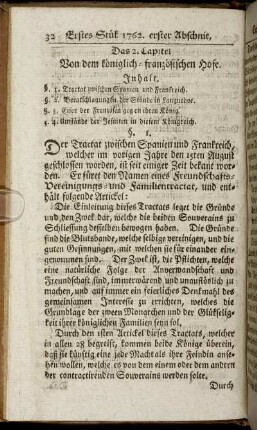 32 Erstes Stük 1762. erster Abschnit,
Das 2. Capitel
Von dem königlich-französischen Hofe.
Inhalt.
§. 1. Tractat zwischen Spanien und Frankreich.
§. 2. Berathschlagungen der Stände in Languedoc.
§. 3. Eifer der Franzosen gegen ihren König.
§. 4. Umstände der Jesuiten in diesem Königreich.
§. 1.
Der Tractat zwischen Spanien und Frankreich,
welcher im vorigen Jahre den 15ten August
geschlossen worden, ist seit einiger Zeit bekant wor-
den. Er füret den Namen eines Freundschafts-
Vereinigungs- und Familientractat, und ent-
hält folgende Artickel:
Die Einleitung dieses Tractats leget die Gründe
und den Zwek dar, welche die beiden Souverains zu
Schliessung desselben bewogen haben. Die Gründe
sind die Blutsbande, welche selbige vereinigen, und die
guten Gesinnungen, mit welchen sie für einander einge-
genommen sind. Der Zwek ist, die Pflichten, welche
eine natürliche Folge der Anverwandschaft und
Freundschaft sind, immerwärend und unauflöslich zu
machen, und auf immer ein feierliches Denkmahl des
gemeinsamen Interesse zu errichten, welches die
Grundlage der zween Monarchen und der Glükselig-
keit ihrer königlichen Familien seyn sol.
Durch den 1sten Artickel dieses Tractats, welcher
in allen 28 begreift, kommen beide Könige überein,
daß sie künftig eine jede Macht als ihre Feindin anse-
hen wollen, welche es von dem einem oder dem andern
der contractirenden Souverains werden solte.
Durch